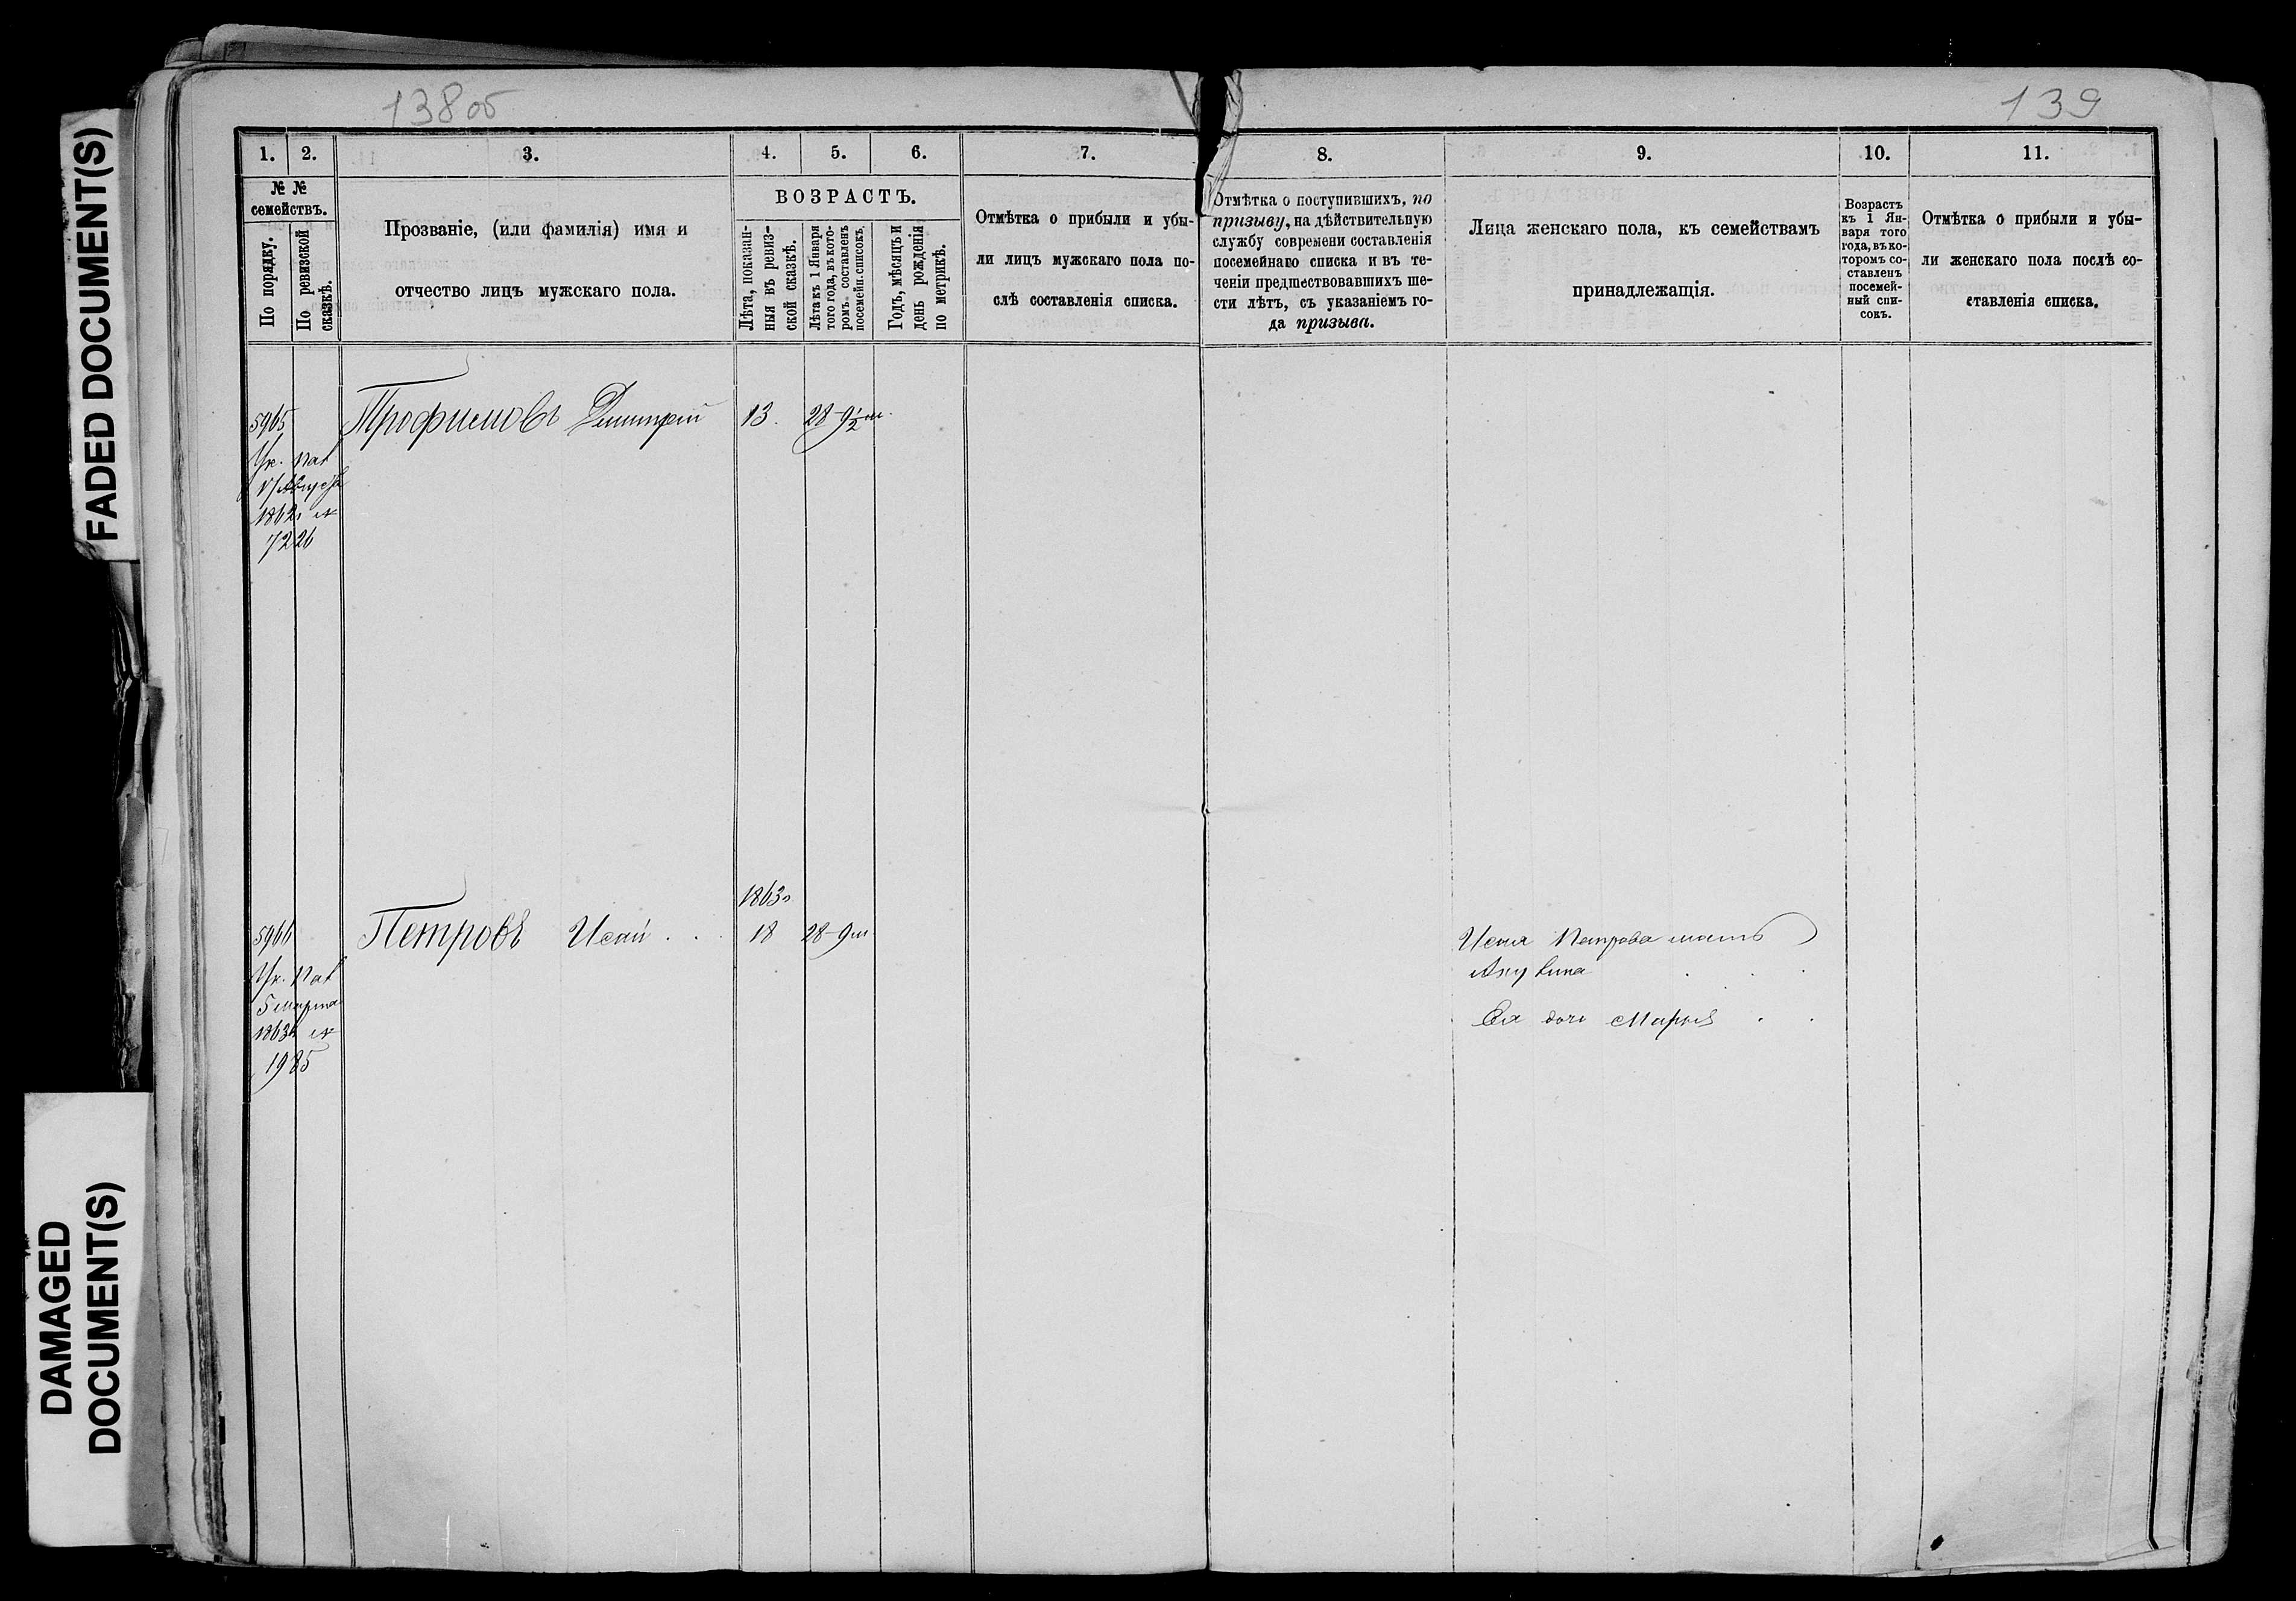 FADED DOCUMENT(S)
DAMAGED
DOCUMENT(S)
138об
139
1. 2. 3. 4. 5. 6. 7. 8. 9. 10. 11.
№ №
семействъ.
По порядку.
По ревизской
сказкѣ.
Прозваніе, (или фамилія) имя и
отчество лицъ мужскаго пола.
ВОЗРАСТЪ.
Лѣта, показан-
ныя въ ревиз-
ской сказкѣ.
Лѣта къ 1 Января
того года, въ кото-
ромъ составленъ
посемейн. списокъ.
Годъ, мѣсяцъ и
день рожденія
по метрикѣ.
Отмѣтка о прибыли и убы-
ли лицъ мужскаго пола по-
слѣ составленія списка.
Отмѣтка о поступившихъ, по
призыву, на дѣйствительную
службу современи составленія
посемейнаго списка и въ те-
ченіи предшествовавшихъ ше-
сти лѣтъ, съ указаніемъ го-
да призыва.
Лица женскаго пола, къ семействамъ
принадлежащія.
Возрастъ
къ 1 Ян-
варя того
года, въ ко-
торомъ со-
ставленъ
посемей-
ный спи-
сокъ.
Отмѣтка о прибыли и убы-
ли женскаго пола послѣ со-
ставленія списка.
5965 Трофимовъ Дмитрій 13. 28-9½ м.
Ук. Пал
Августа
1862г №
7226
1863г
5966 Петровъ Исай . . 18 28-9м
Ук. Пал
5 марта
1863г №
1985
Исая Петрова мать
Акулина . . .
Ея дочь Марья . .